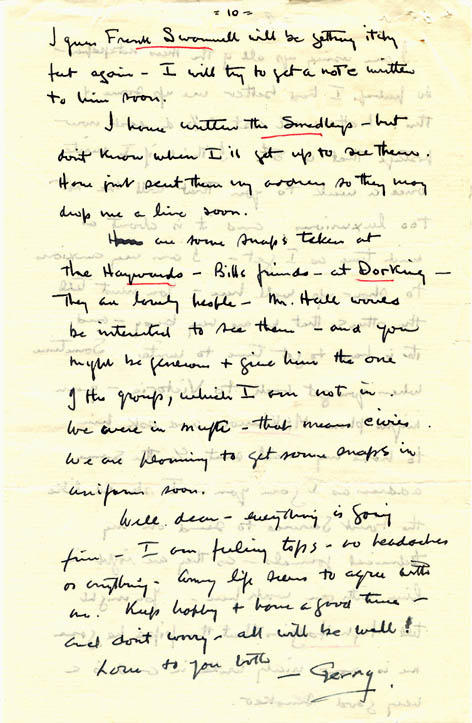 = 10 =
I guess Frank Swannell will be getting itchy
feet again - I will try to get a note written
to him soon.
I have written the Smedleys - but
dont know when I'll get up to see them.
Have just sent them my address so they may
drop me a line soon.
are some snaps taken at
the Haywards - Bills friends - at Dorking -
They are lovely people - Mr. Hall would
be interested to see them - and you
might be generous + give him the one
of the group, which I am not in.
We were in mufti - that means civies.
We are planning to get some snaps in
uniform soon.
Well. dear - everything is going
fine - I am feeling tops - no headaches
or anything - Army life seems to agree with
me. Keep happy + have a good time -
and dont worry - all will be well!
Love to you both
- Gerry.